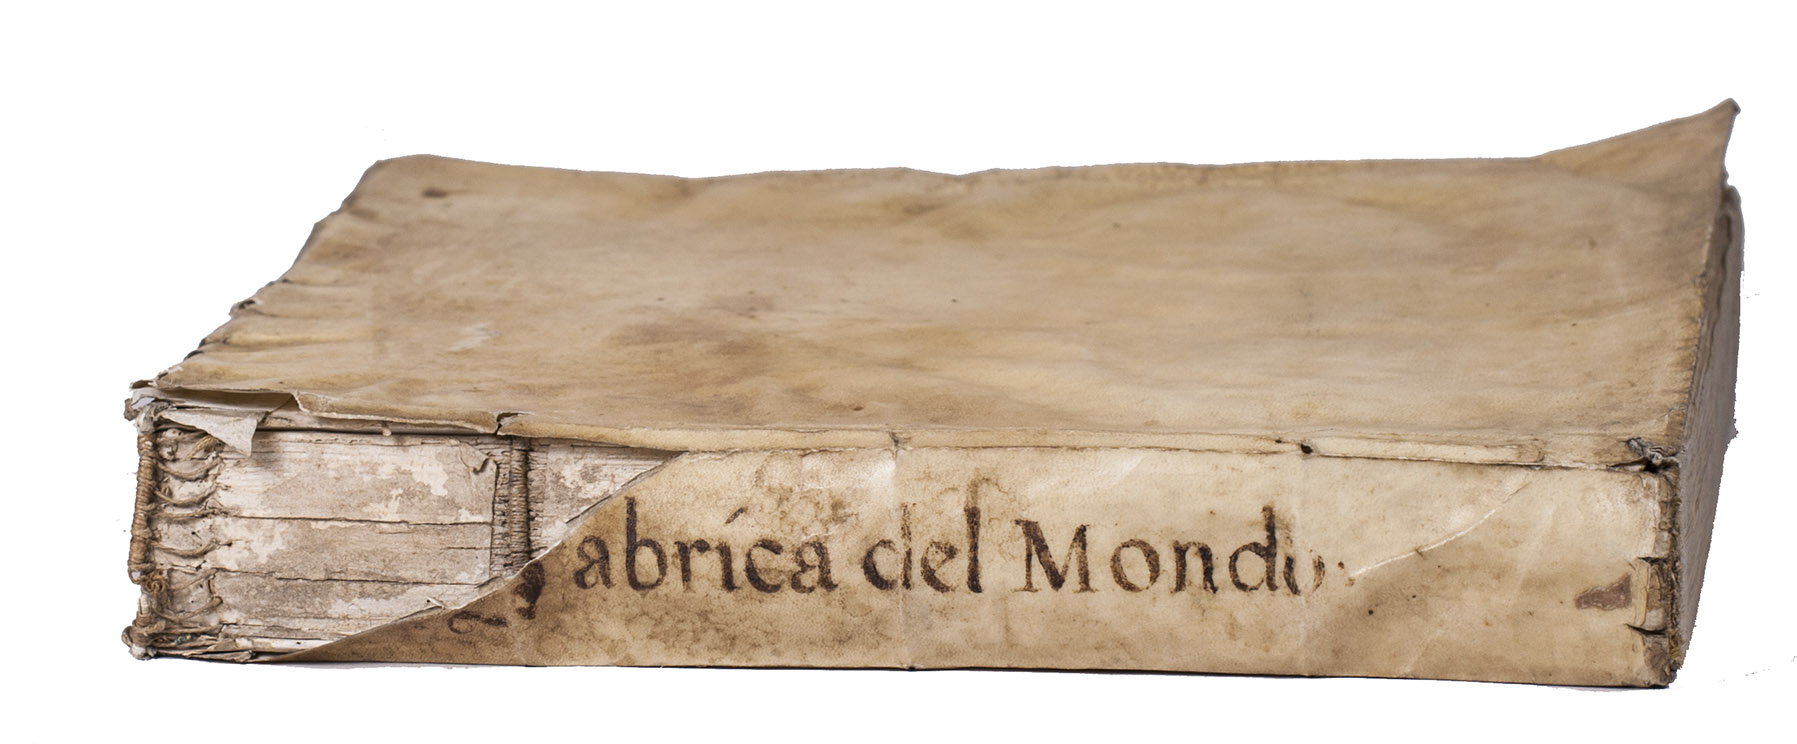 Fabrica del Mondo.